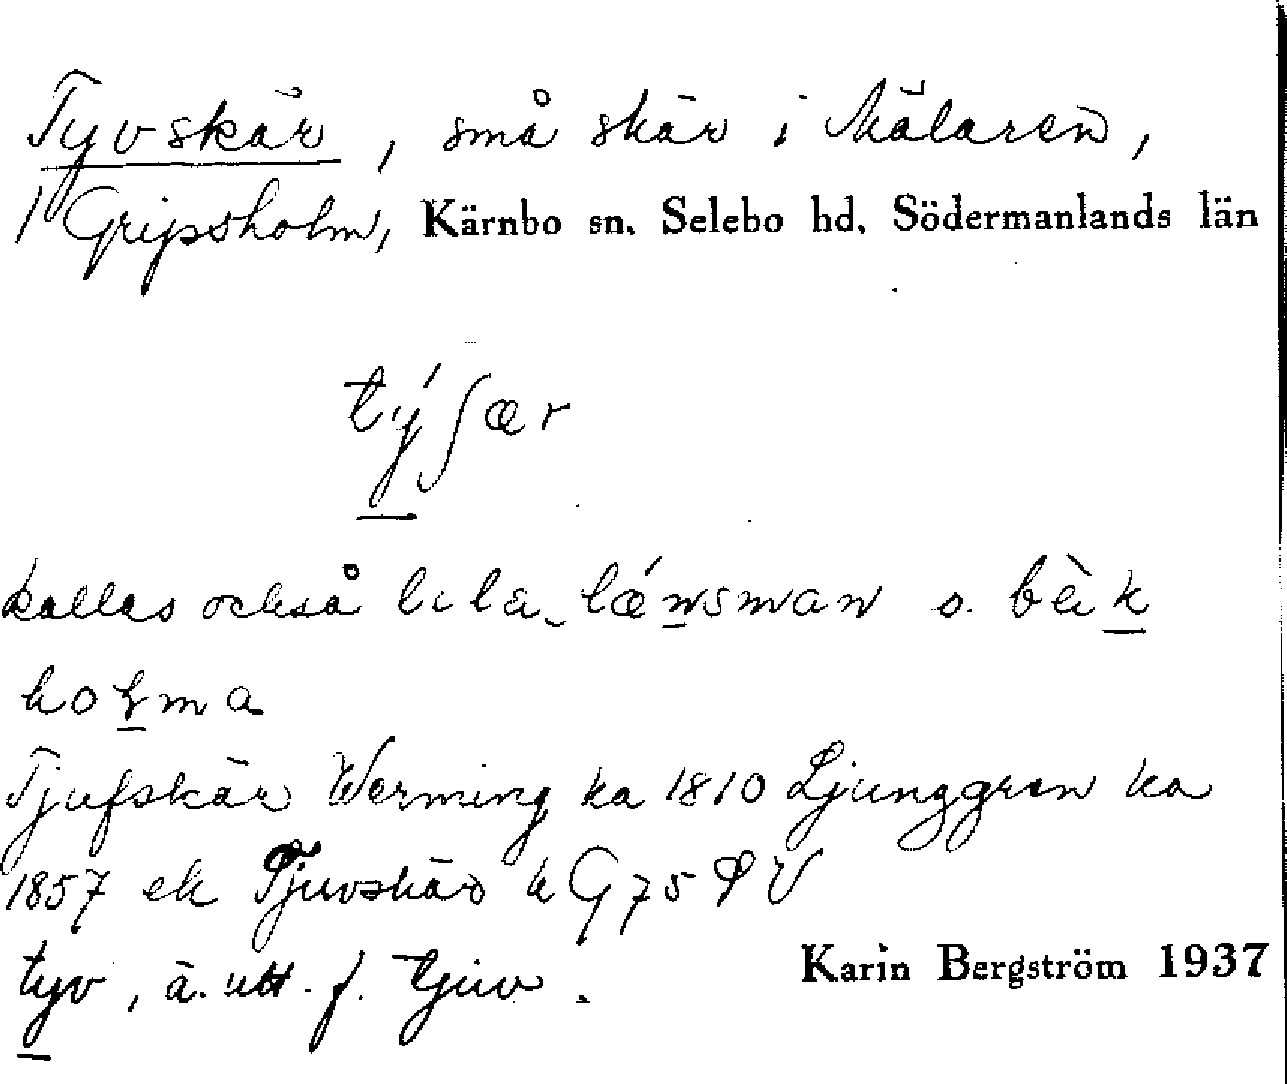 Tyvskär, små skär i Mälaren,
/ Gripsholm, Kärnbo sn. Selebo hd. Södermanlands län
tý∫ær
kallas också lila lǽnsman o. bèk
holma
Tjufskär Werming ka 1810 Ljunggren ka
1857 ek Tjuvskär h G 75 SV
tyv, ä. utt. f. tjuv.
Karin Bergström 1937